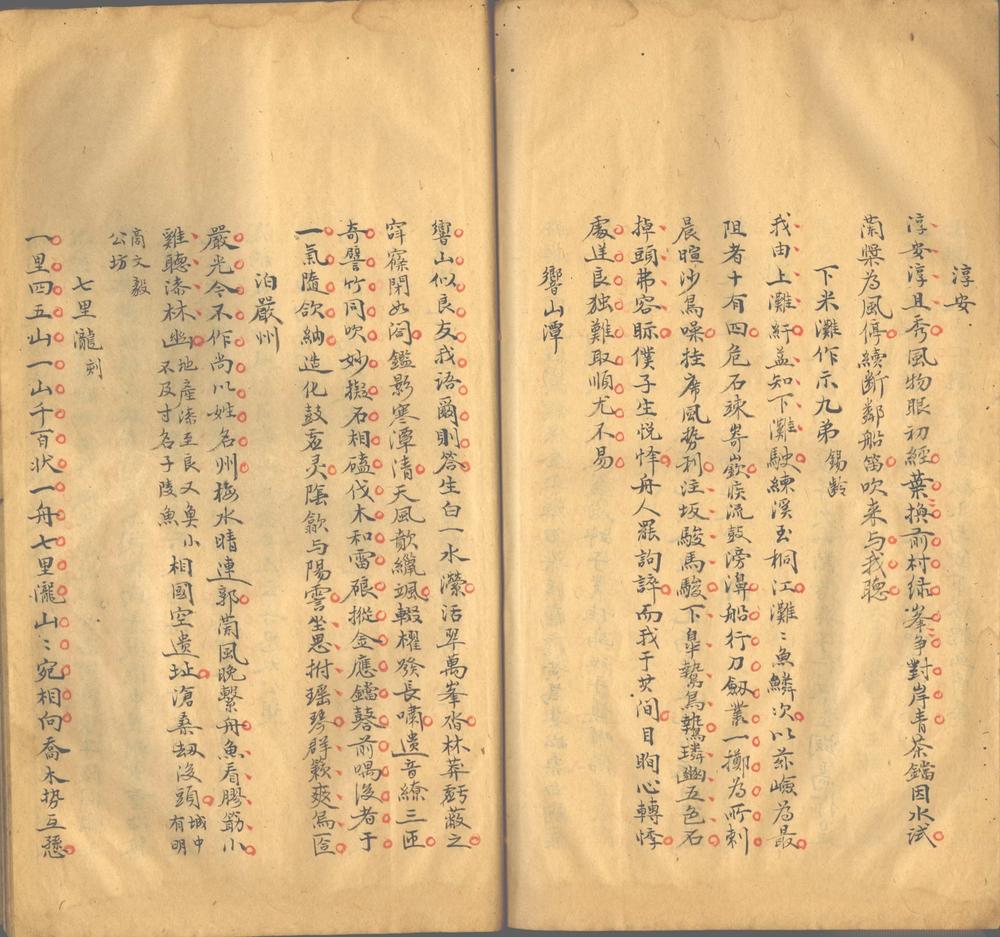 淳安
淳安淳且秀風物眼初經葉換前村绿峯争對岸青茶鐺因水試
蘭槳為風停續斷鄰船笛吹来与我聴
下米灘作示九弟錫齡
我由上灘紆益知下灘駛練溪至桐江灘〻魚鱗次以茲嶮為最
阻者十有四危石竦嵜嶔疾流毂滂濞船行刀劔叢一擲為所刺
晨暄沙鳥噪挂席風势利注坂駿馬駿下臯鷙鳥鷙璘豳五色石
掉頭弗容眎僕子生悦怿舟人罷詢誶而我于其间目眴心轉悸
處逹良独難取順尤不易
響山潭
響山似良友我语爾則答生白一水瀠活翠萬峯沓林莽虧蔽之
窙寥閑如阎鑑影寒潭清天風歕纖颯輟櫂發長嘯遺音繚三匝
奇譬竹同吹妙擬石相磕伐木和雷硠摐金應鐺鞳前喁後者于
一氣隨欱納造化鼓虚灵陰歙与陽霅坐思拊瑶琴群籁爽焉匼
泊嚴州
嚴光今不作尚以姓名州梅水晴連郭蘭風晚繫舟魚看膠箭小
雞聴漆林幽地產漆至良又奥小不及寸名子陵魚相國空遺址滄桑刼後頭城中有明
高文毅公坊
七里瀧刻
一里四五山一山千百状一舟七里瀧山〻宛相向喬木势互懸